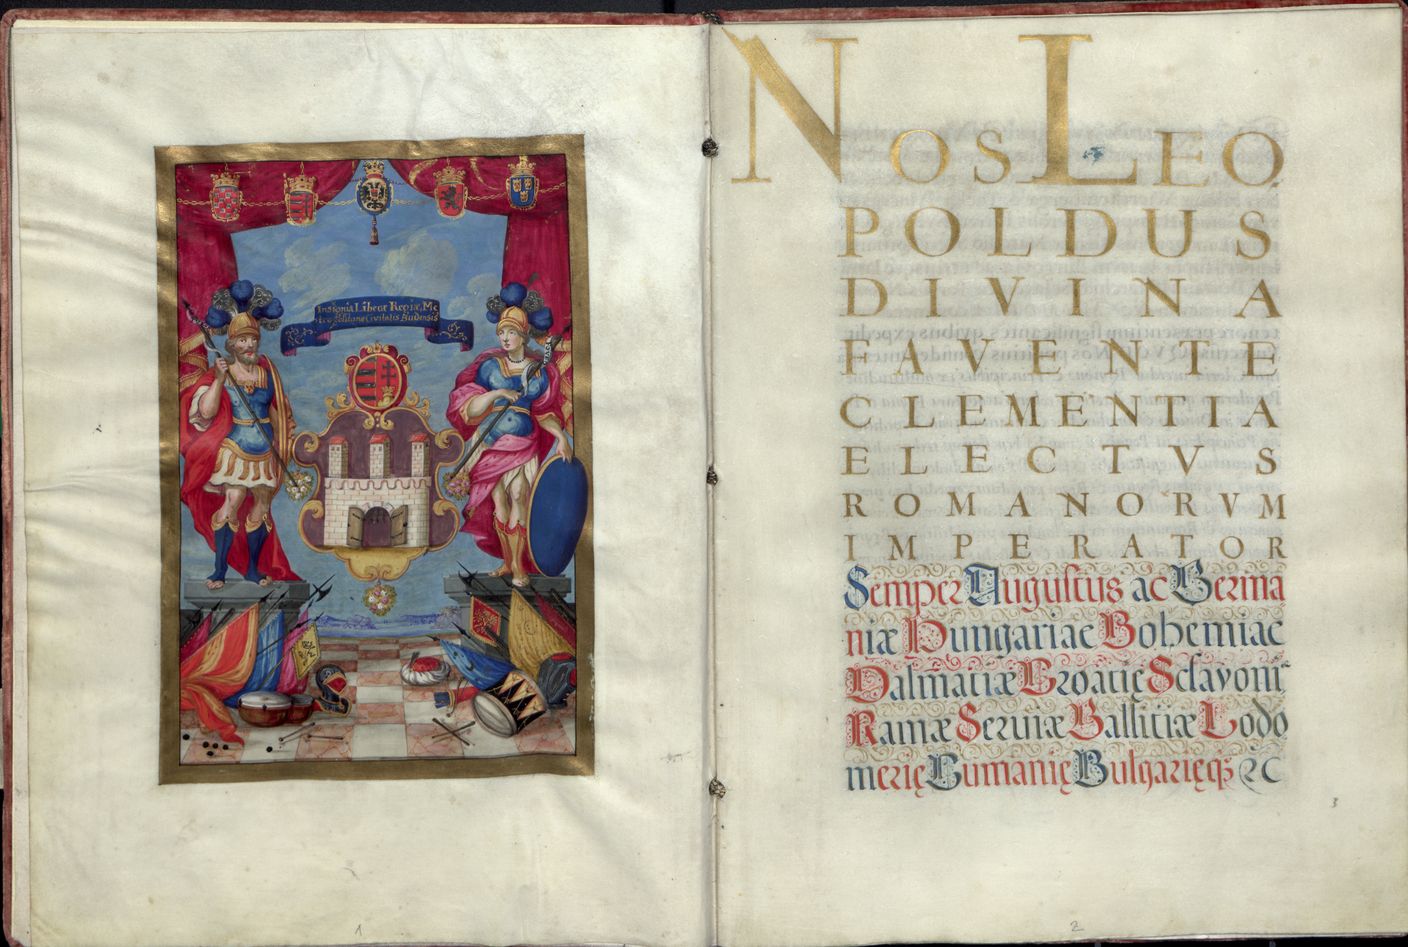 Insignia Liberæ Regiæ Me
tropolitanæ Civitatis Budensis
NOS LEO
POLDUS
DIVINA
FAVENTE
CLEMENTIA
ELECTVS
ROMANORVM
IMPERATOR
Semper Augustus ac Germa
niæ Hungariae Bohemiae
Dalmatiæ Croatię Sclavoni
Ramæ Serviæ Gallitiæ Lodo
merię Cumanię Bulgarięq3 &c
1
2
3